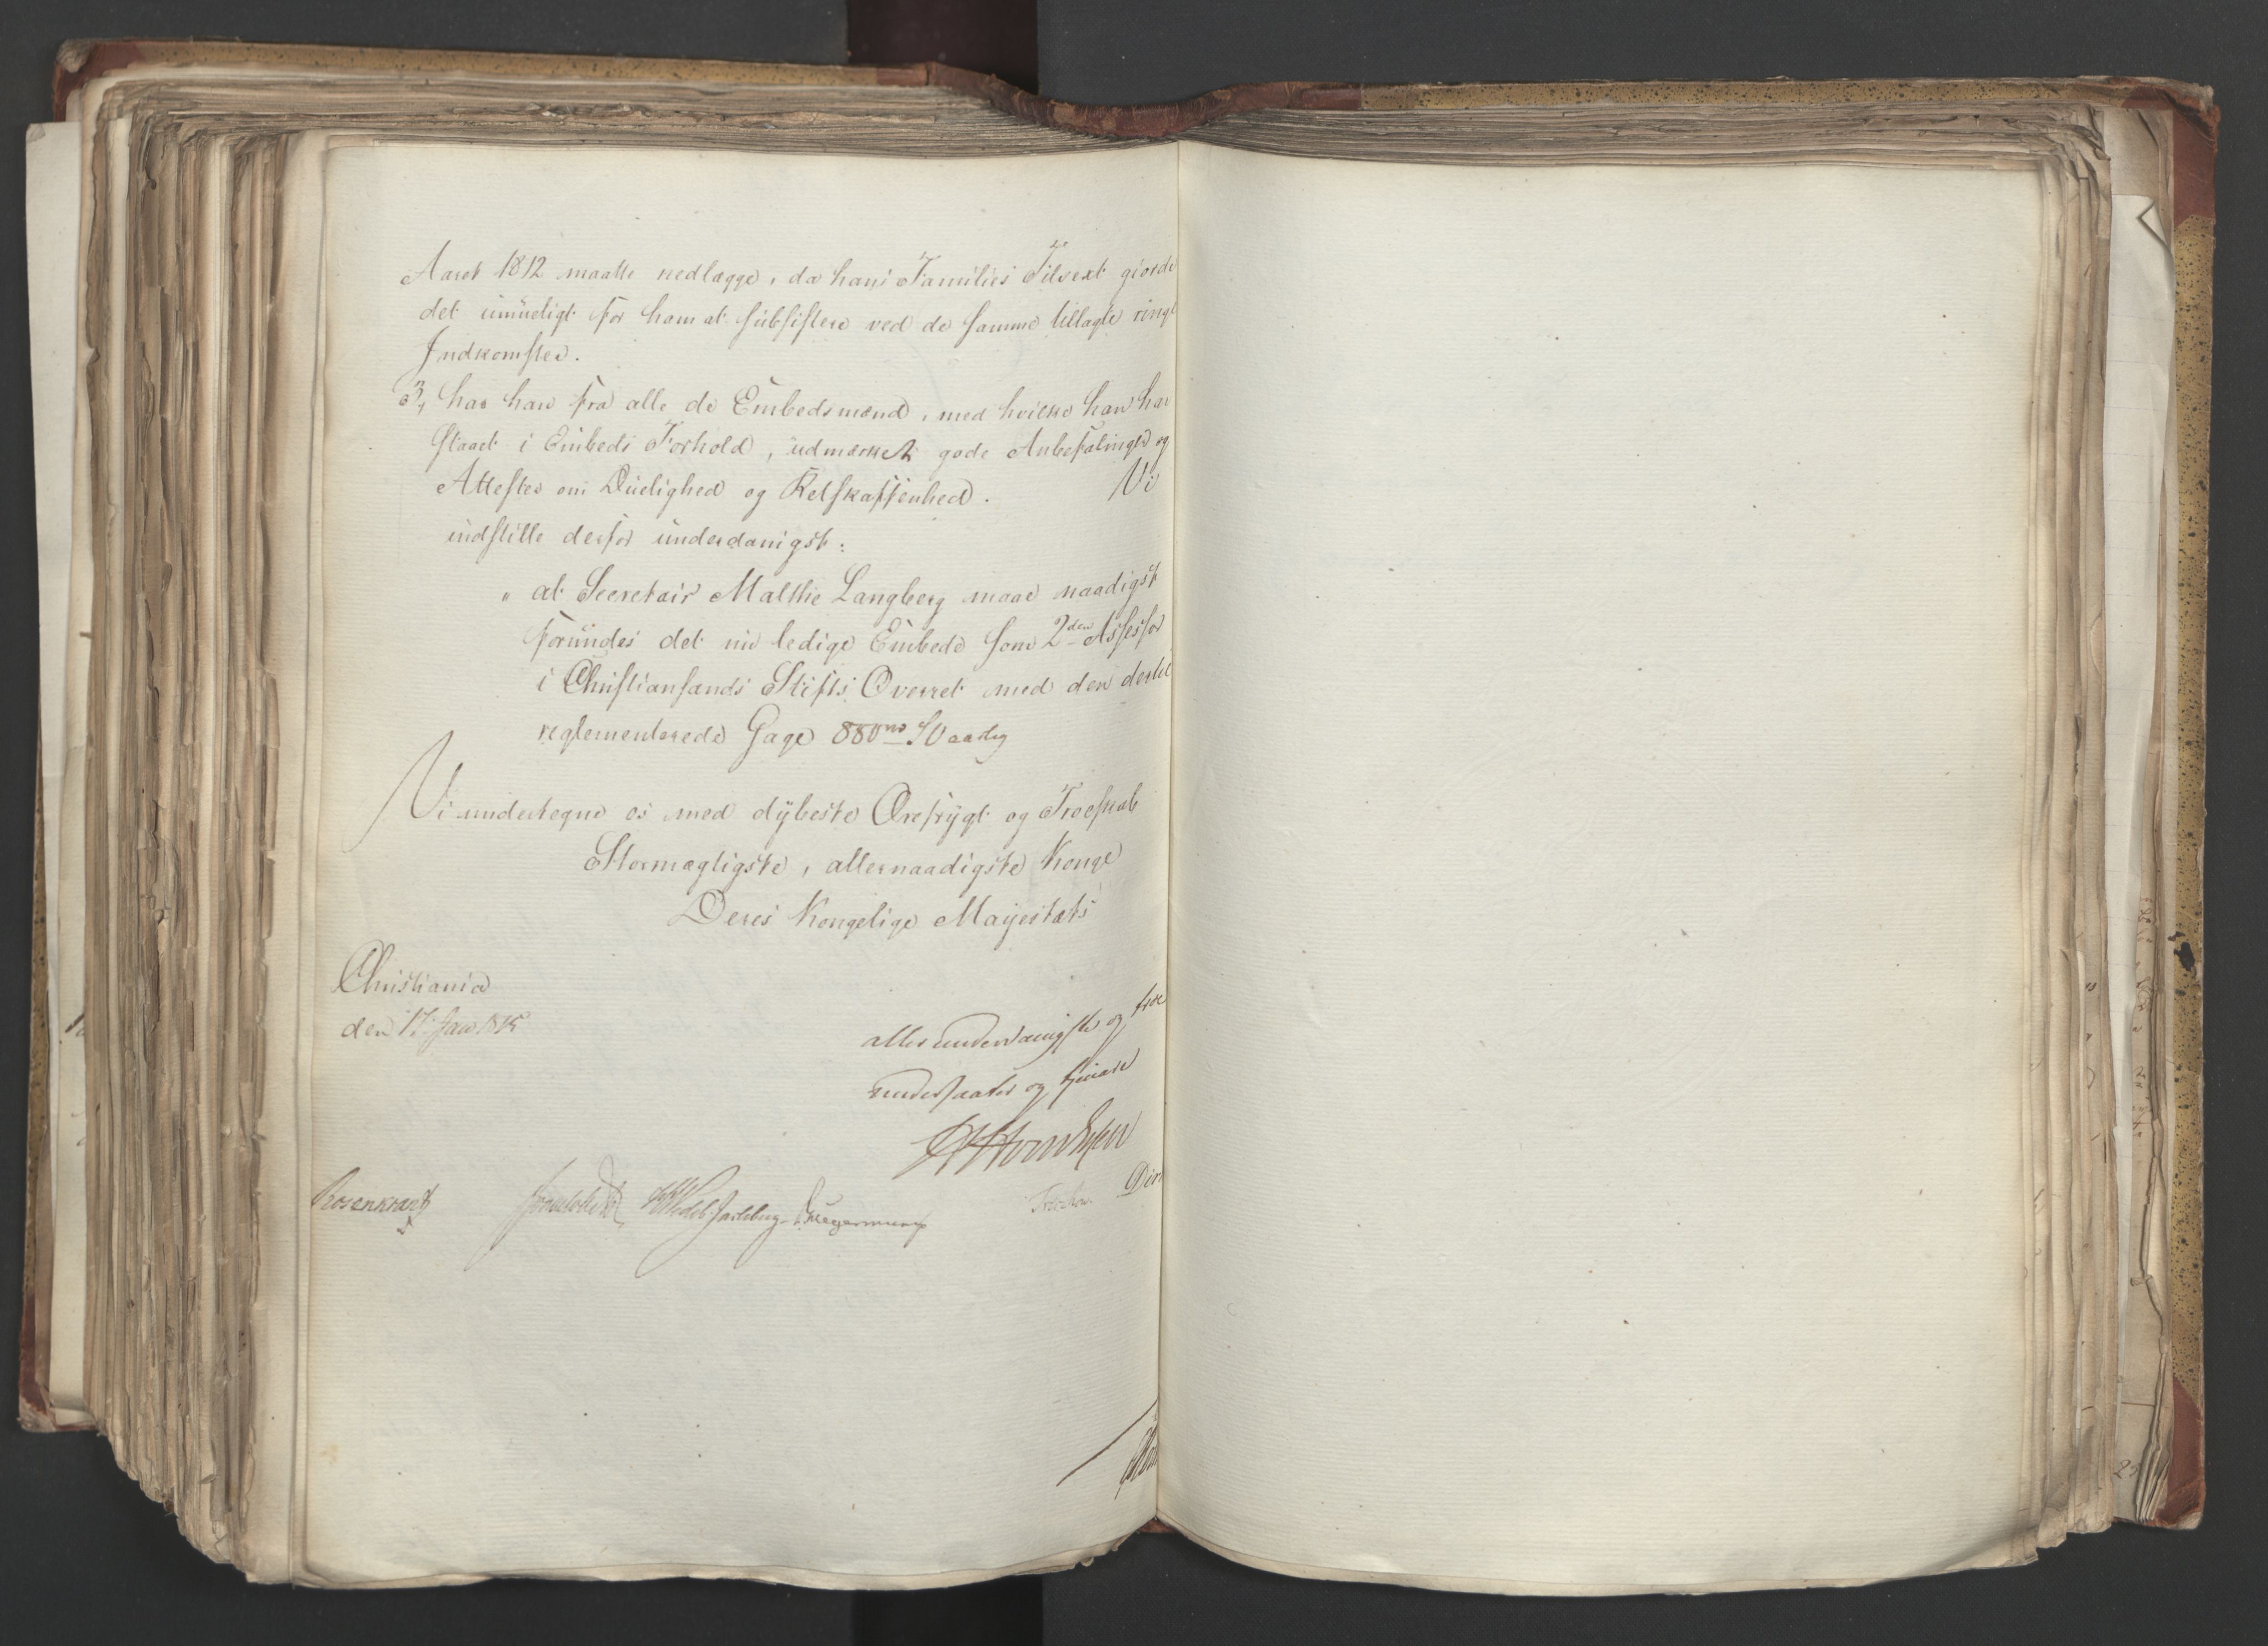 Aaret 1812 maatte nedlægge, da hans Families Tilvext giorde
det umueligt for ham at subsistere ved de samme tillagte ringe
Indkomster.
3, har han fra alle de Embedsmænd, med hvilke han har
staaet i Embeds Forhold, udmærket gode Anbefalinger og
Attester om Duelighed og Retskaffenhed. Vi
indstille derfor underdanigst:
„ at Secretair Malthe Langberg maae naadigst
forundes det nu ledige Embede som 2den Assessor
i Christiansands Stifts Overret med den dertil
reglementerede Gage 880 aarlig
Vi undertegne os med dybeste Ærefrygt og Troeskab
Stormægtigste, allernaadigste Konge
Deres Kongelige Mayestæts
Christiania
den 17 Jan 1815
allerunderdanigste og troe
undersaatter og tienere
Rosenkrantz Sommerhielm Wedel Jarlsberg Diriks